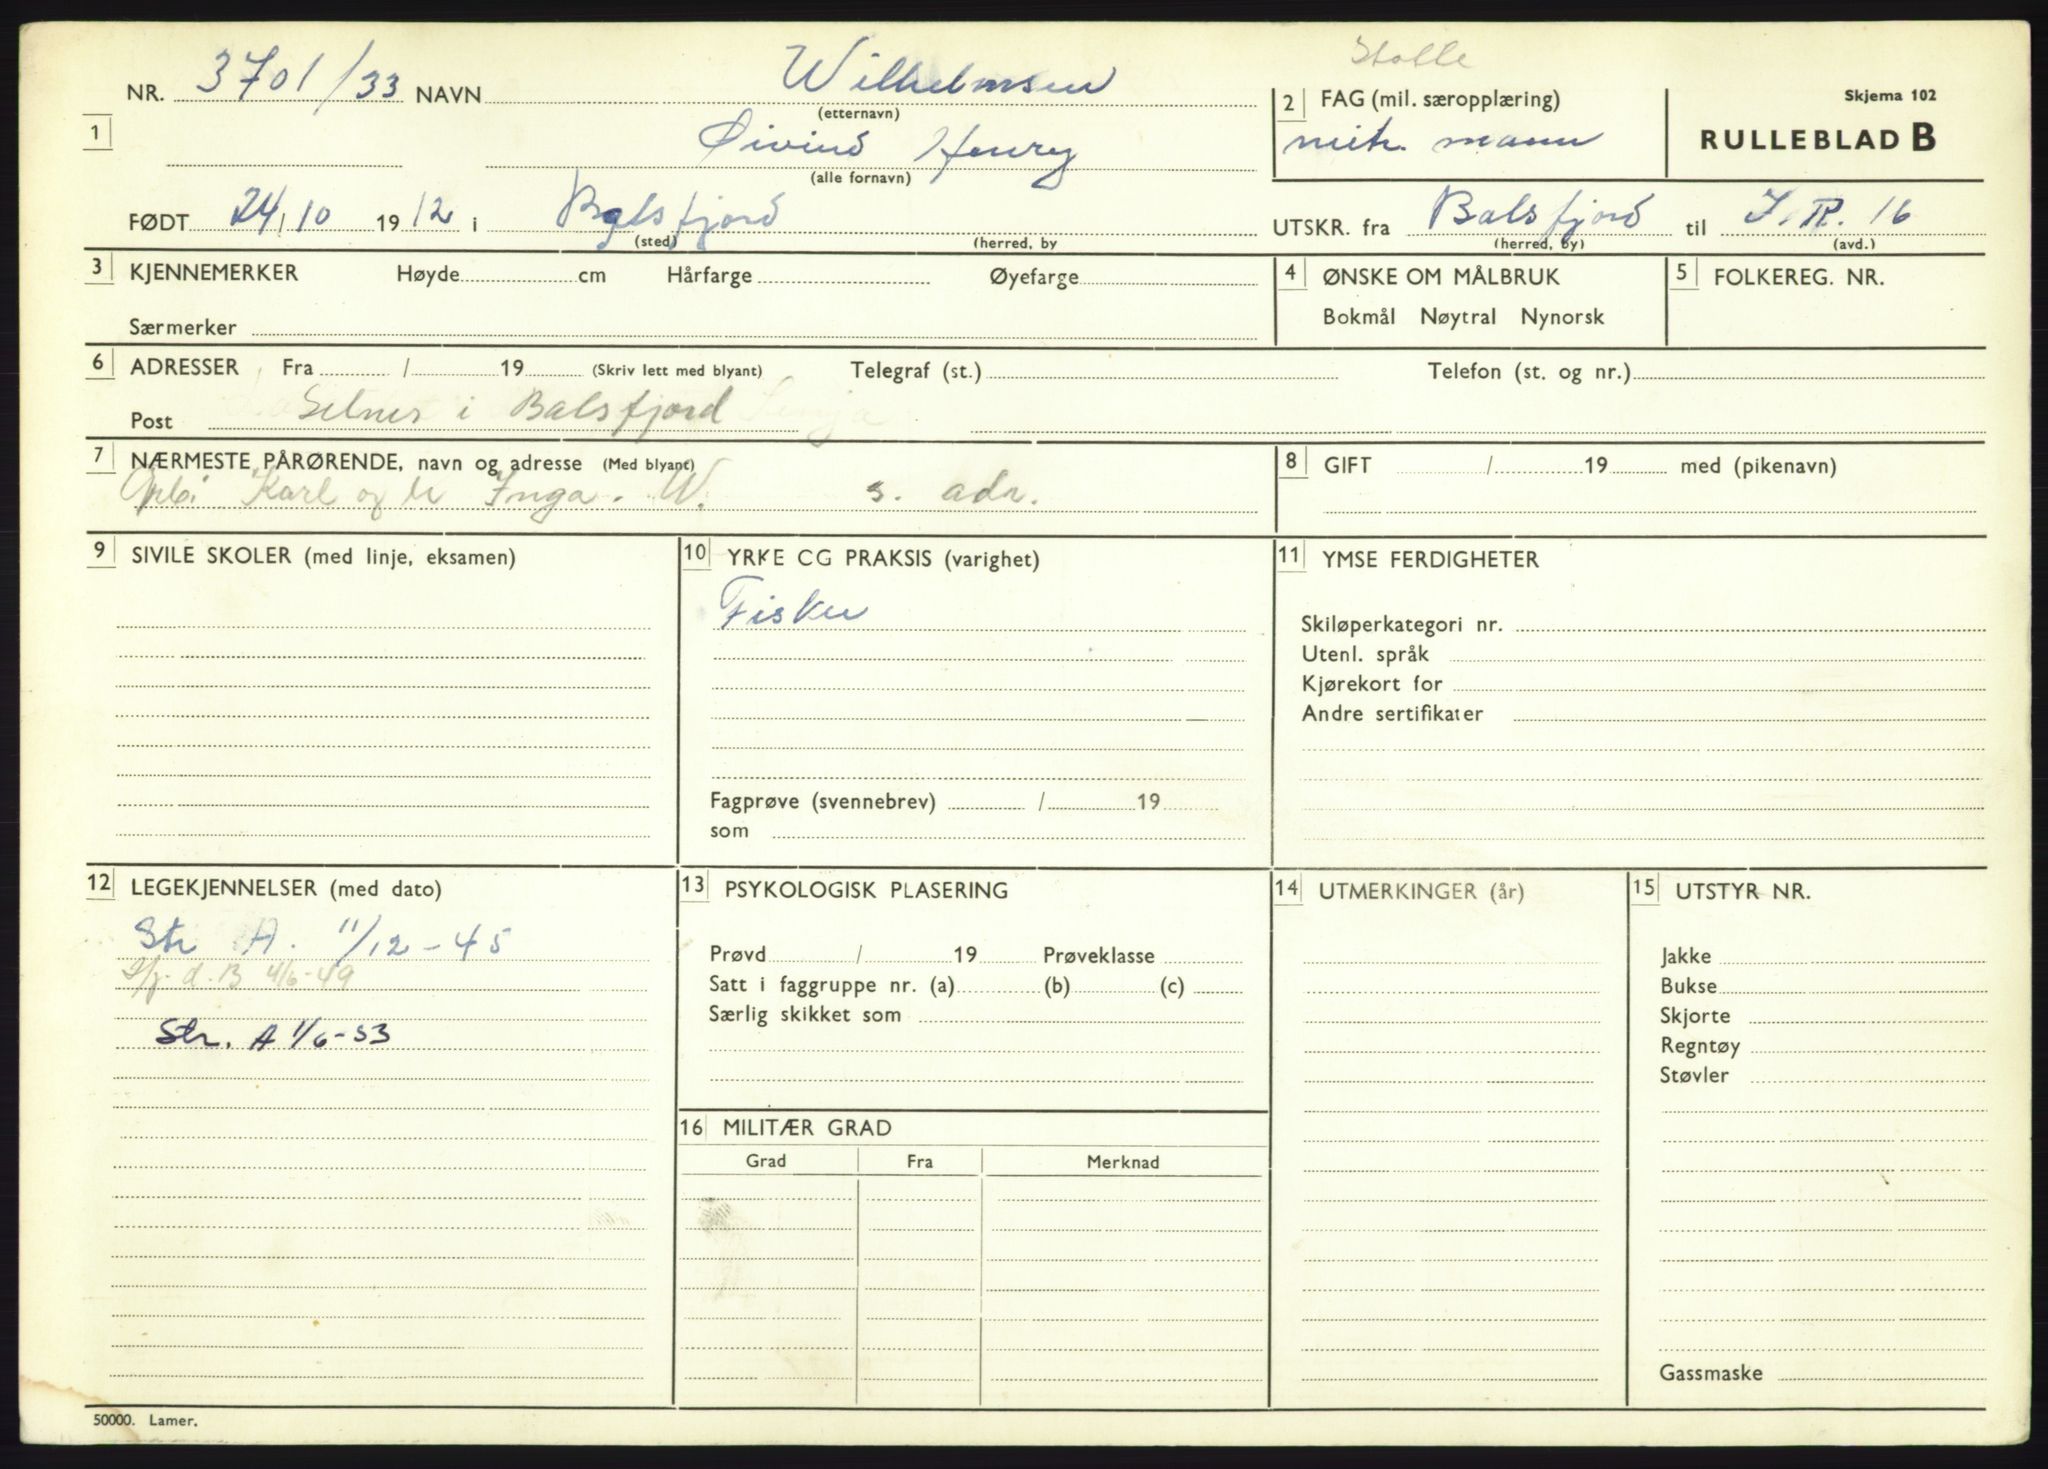 Stolle
NR. 3701/33 NAVN Wilhelmsen
(etternavn)
2 FAG (mil. særopplæring)
Skjema 102
1
Øivind Henry
(alle fornavn)
mitr. mann
RULLEBLAD B
FØDT 24/10 1912 i Balsfjord
(sted) (herred, by
UTSKR. fra Balsfjord til I.R. 16
(herred, by) (avd.)
3 KJENNEMERKER Høyde cm Hårfarge Øyefarge
Særmerker
4 ØNSKE OM MÅLBRUK
Bokmål Nøytral Nynorsk
5 FOLKEREG. NR.
6 ADRESSER Fra / 19 (Skriv lett med blyant) Telegraf (st.) Telefon (st. og nr.)
Post Selnes i Balsfjord
7 NÆRMESTE PÅRØRENDE, navn og adresse (Med blyant)
Karl og Inga. W. s. adr.
8 GIFT / 19 med (pikenavn)
9 SIVILE SKOLER (med linje, eksamen)
10 YRKE CG PRAKSIS (varighet)
Fisker
Fagprøve (svennebrev) / 19
som
11 YMSE FERDIGHETER
Skiløperkategori nr.
Utenl. språk
Kjørekort for
Andre sertifikater
12 LEGEKJENNELSER (med dato)
Str A. 11/12-45
d. B 4/6-49
Str. A 1/6-53
13 PSYKOLOGISK PLASERING
Prøvd / 19 Prøveklasse
Satt i faggruppe nr. (a) (b) (c)
Særlig skikket som
14 UTMERKINGER (år)
15 UTSTYR NR.
Jakke
Bukse
Skjorte
Regntøy
Støvler
Gassmaske
16 MILITÆR GRAD
Grad Fra Merknad
50000. Lamer.